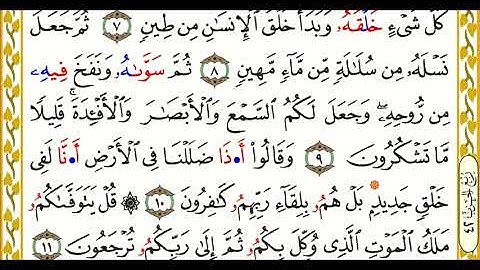 كُلَّ شَىْءٍ خَلْقَهُۥ وَبَدَأَ خَلْقَ ٱلْإِنسَٰنِ مِن طِينٍ ٧ ثُمَّ جَعَلَ
نَسْلَهُۥ مِن سُلَٰلَةٍ مِّن مَّآءٍ مَّهِينٍ ٨ ثُمَّ سَوَّىٰهُۥ وَنَفَخَ فِيهِۦ
مِن رُّوحِهِۦ وَجَعَلَ لَكُمُ ٱلسَّمْعَ وَٱلْأَبْصَٰرَ وَٱلْأَفْـِٔدَةَ قَلِيلًا
مَّا تَشْكُرُونَ ٩ وَقَالُوٓا۟ أَ•ذَا ضَلَلْنَا فِى ٱلْأَرْضِ أَ•نَّا لَفِى
خَلْقٍ جَدِيدٍۭ بَلْ هُمُۥ بِلِقَآءِ رَبِّهِمُۥ كَٰفِرُونَ ١٠ ۞ قُلْ يَتَوَفَّىٰكُمُۥ
مَلَكُ ٱلْمَوْتِ ٱلَّذِى وُكِّلَ بِكُمُۥ ثُمَّ إِلَىٰ رَبِّكُمُۥ تُرْجَعُونَ ١١